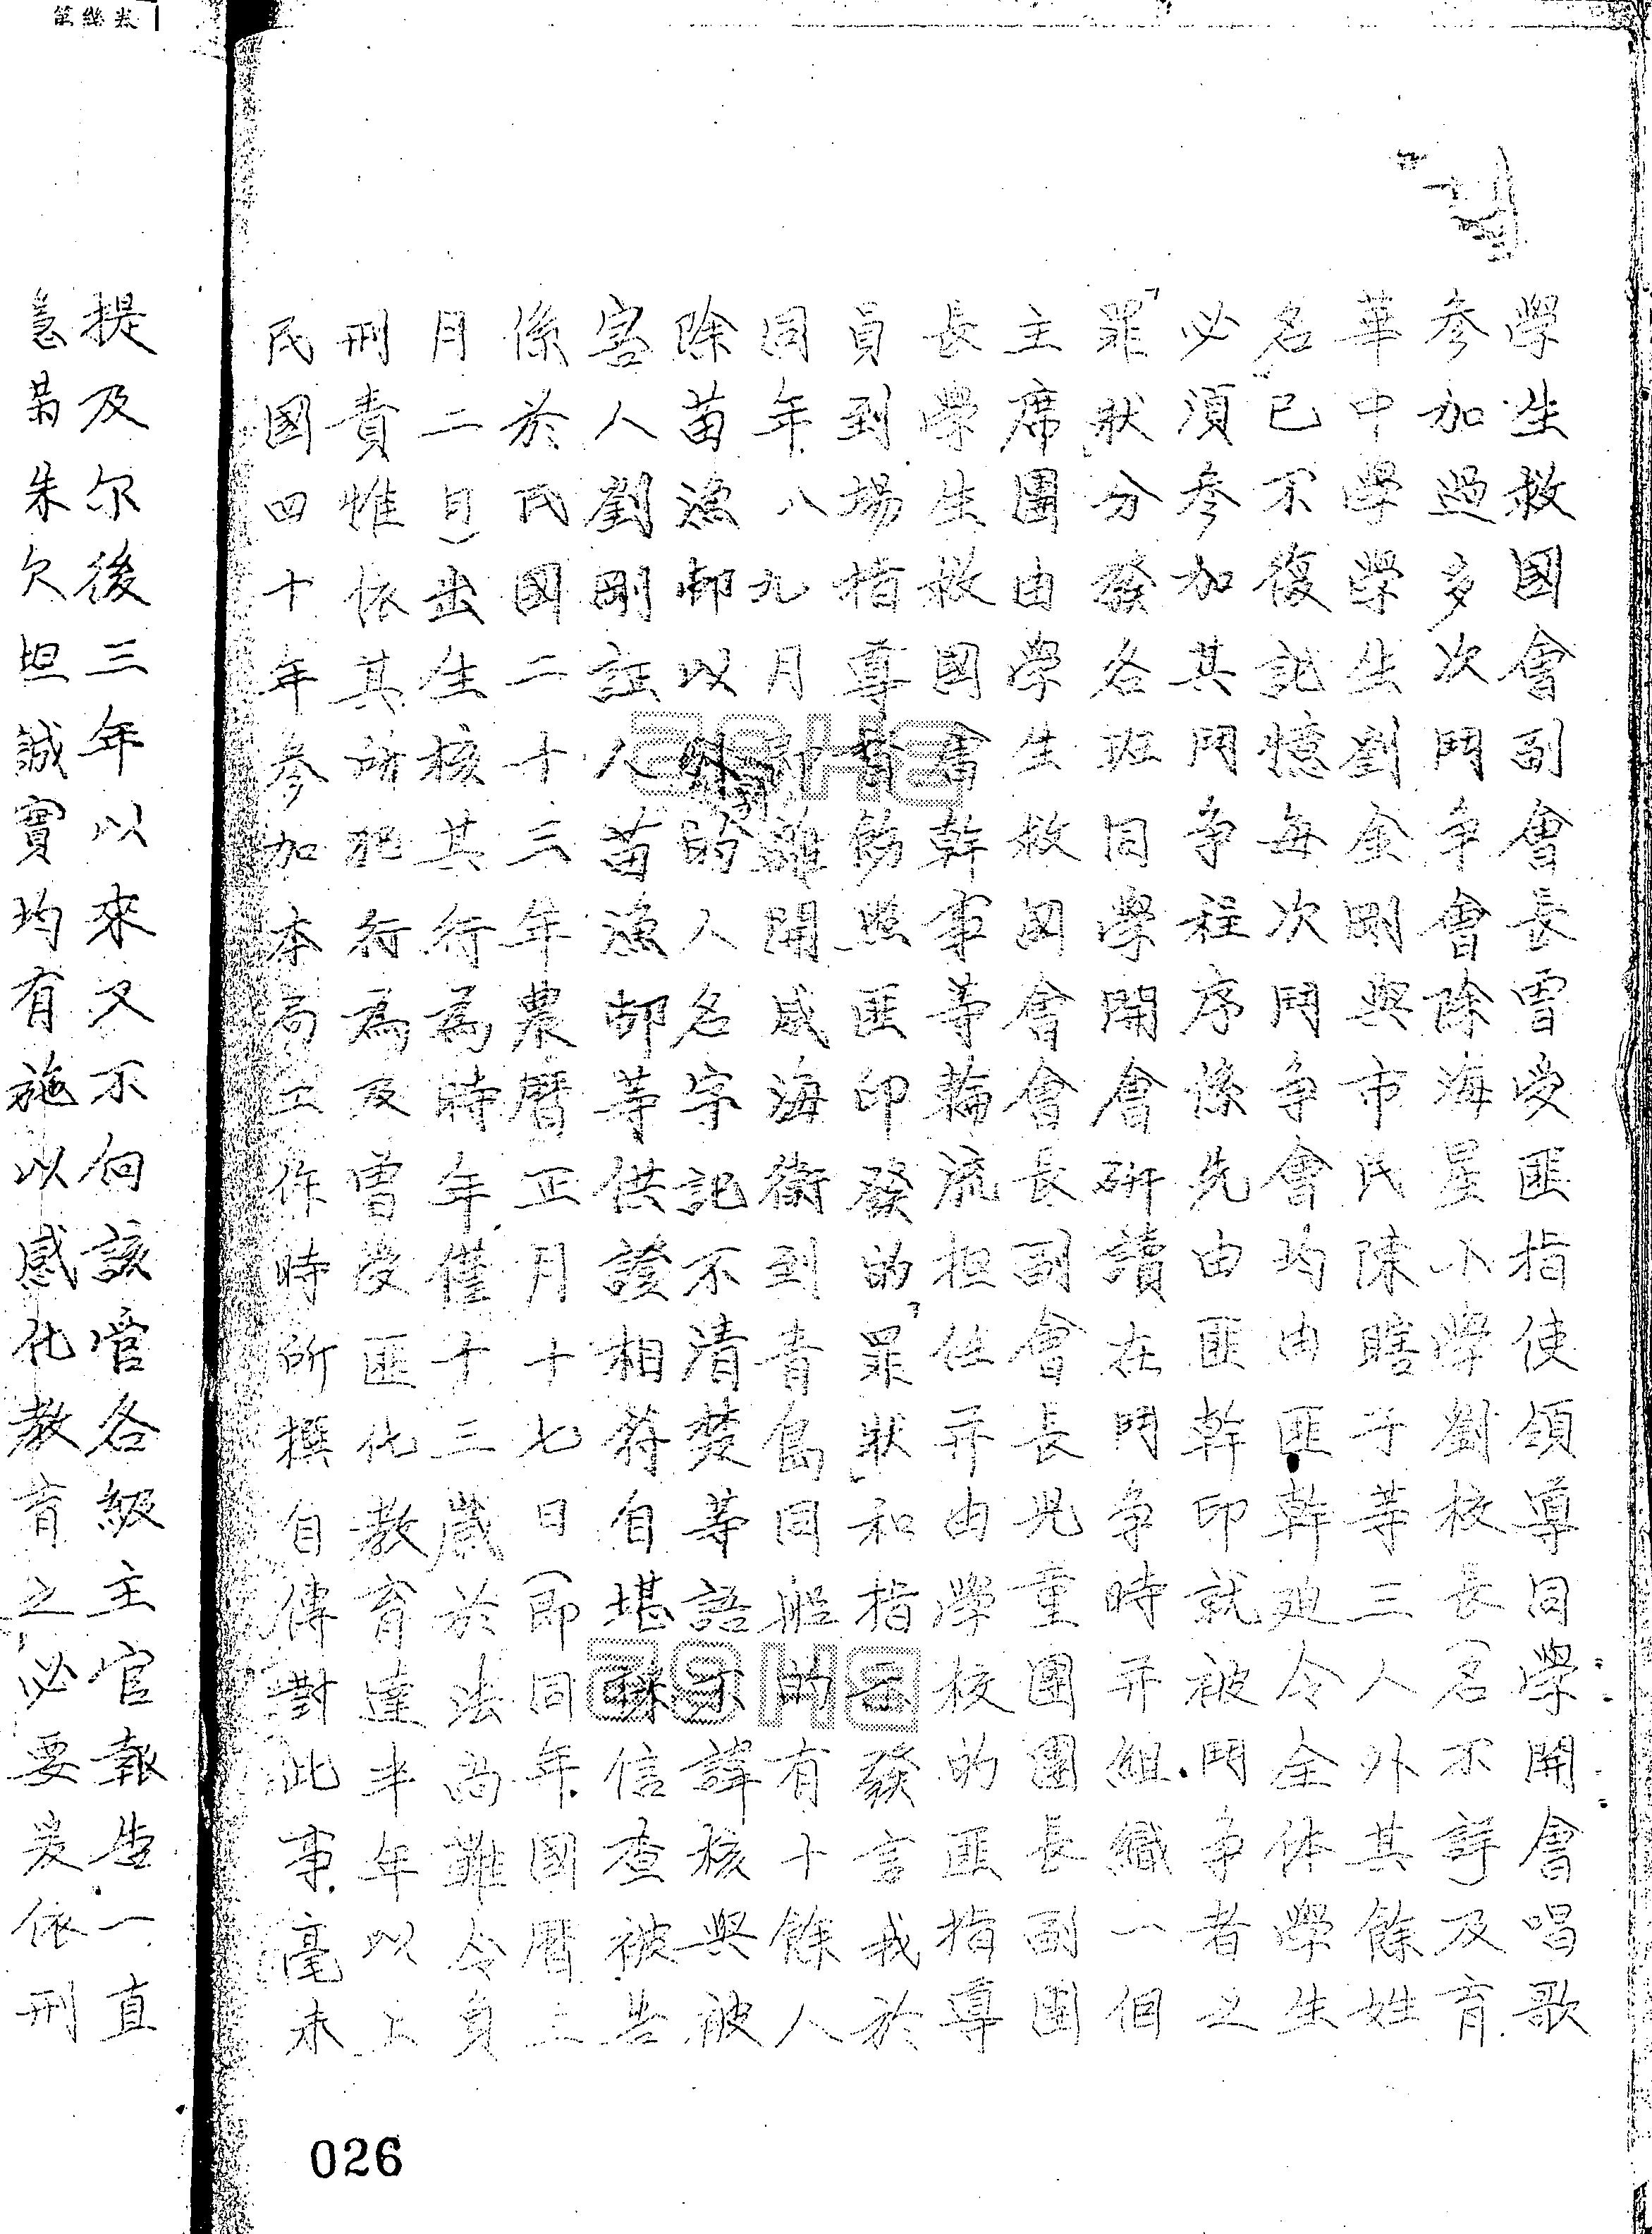 學生救國會副會長曾受匪指使領導同學開會唱歌
參加過多次鬥争會除海星小學劉校長(名不詳)及育
華中學學生劉金剛與市民陳瞎子等三人外其餘姓
名已不復記憶每次鬥争會均由匪幹迫令全体學生
必須參加其鬥争程序係先由匪幹印就被鬥争者之
「罪狀」分發各班同學開會研讀在鬥争時并組織一個
主席團由學生救國會會長副會長兒童團團長副團
長學生救國會幹事等輪流担任并由學校的匪指導
員到場指導 飭照匪印發的「罪狀」和指示發言我於
同年八九月 離開威海衛到青島同船的有十餘人
除苗漁邨以外的人名字記不清楚等語不諱核與被
害人劉剛証人苗漁邨等供證相符自堪採信查被告
係於民國二十三年農曆正月十七日(即同年國曆三
月二日)出生核其行為時年僅十三歲於法尚難令負
刑責惟依其所犯行為及曾受匪化教育達半年以上
民國四十年參加本局工作時所撰自傳對此事毫未
提及尔後三年以來又不向該管各級主官報告一直
隱蔽朱欠坦誠實均有施以感化教育之必要爰依刑
026